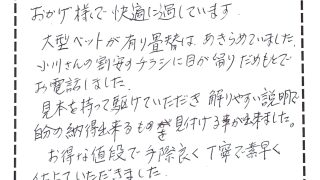 おかげ様で快適に過しています。
大型ベットが有り畳替は、あきらめていました。
小川さんの割安のチラシに目が留りだめもとで
お電話しました。
見本を持って駆けていただき 解りやすい説明で
自分の納得出来るものを見付ける事が出来ました。
お得な値段で手際良く丁寧で素早く
仕上ていただきました。